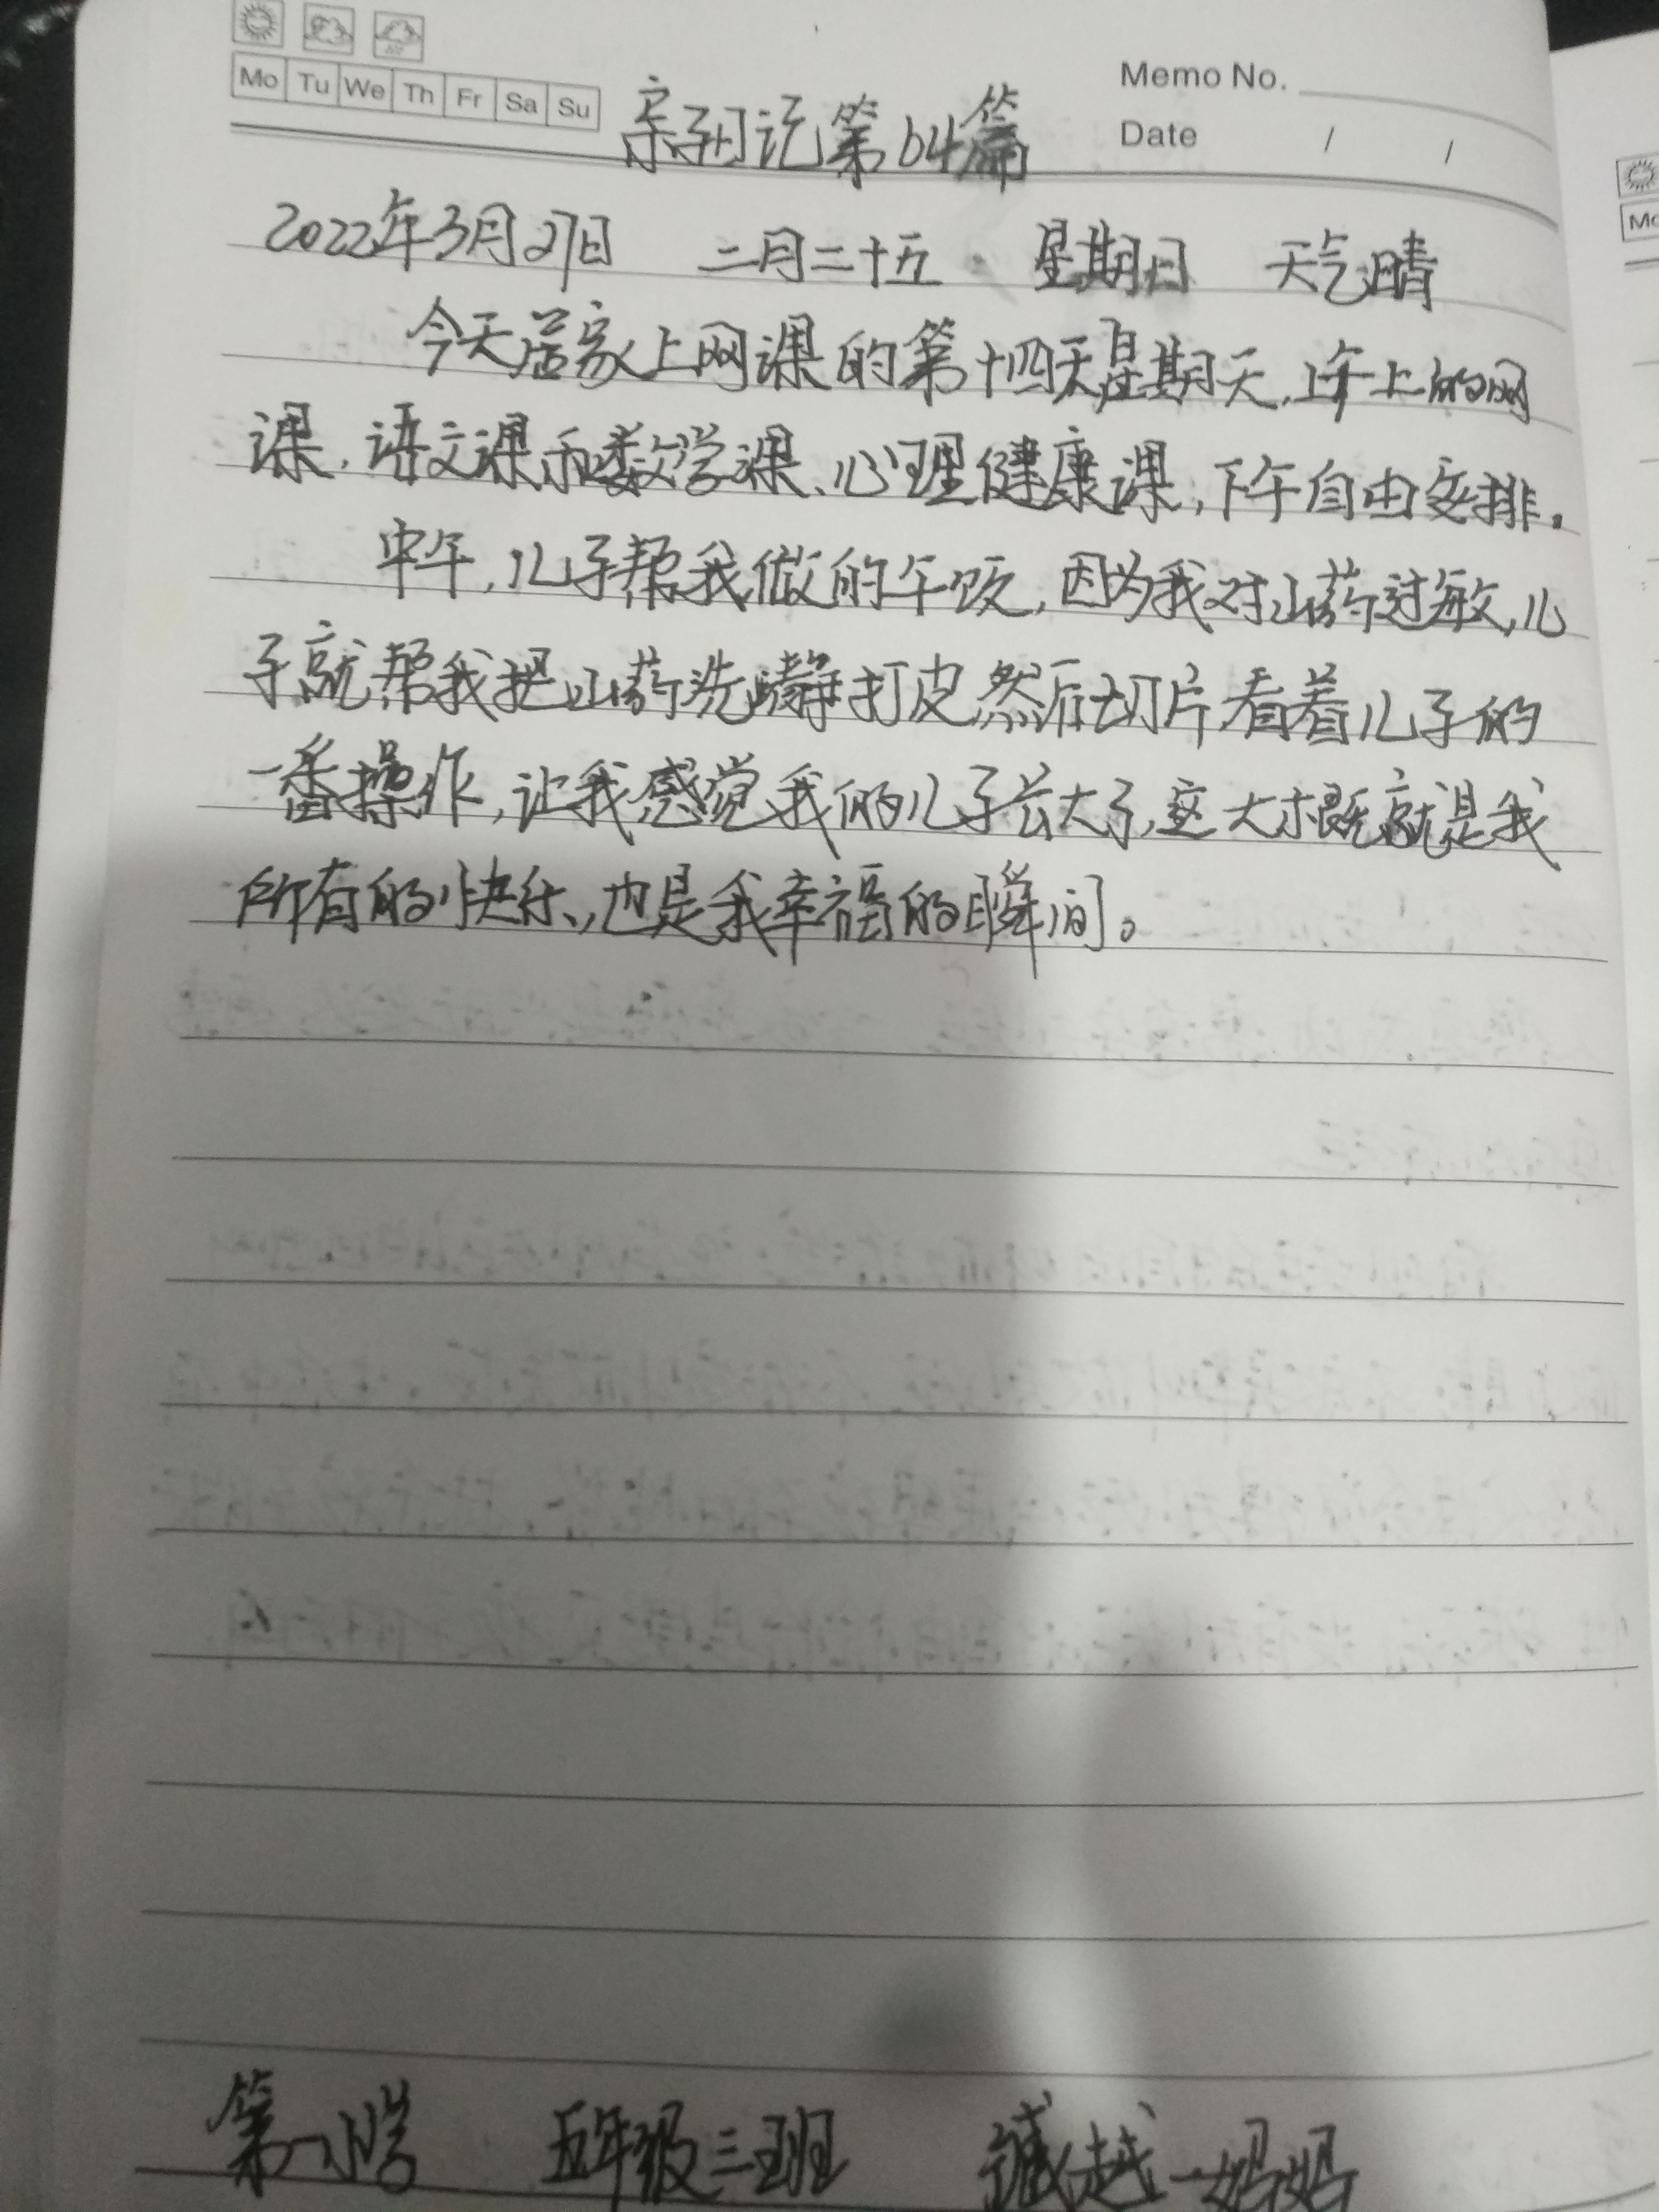 Mo Tu We Th Fr Sa Su
Memo No.
Date / /
亲子日记第64篇
2022年3月27日 二月二十五 星期日 天气晴
今天居家上网课的第十四天星期天,上午上的网
课,语文课和数学课、心理健康课,下午自由安排。
中午,儿子帮我做的午饭,因为我对山药过敏,儿
子就帮我把山药洗静打皮然后切片看着儿子的
一番操作,让我感觉我的儿子长大了,这大概就是我
所有的快乐,也是我幸福的瞬间。
第一小学 五年级三班 越一妈妈
Mo